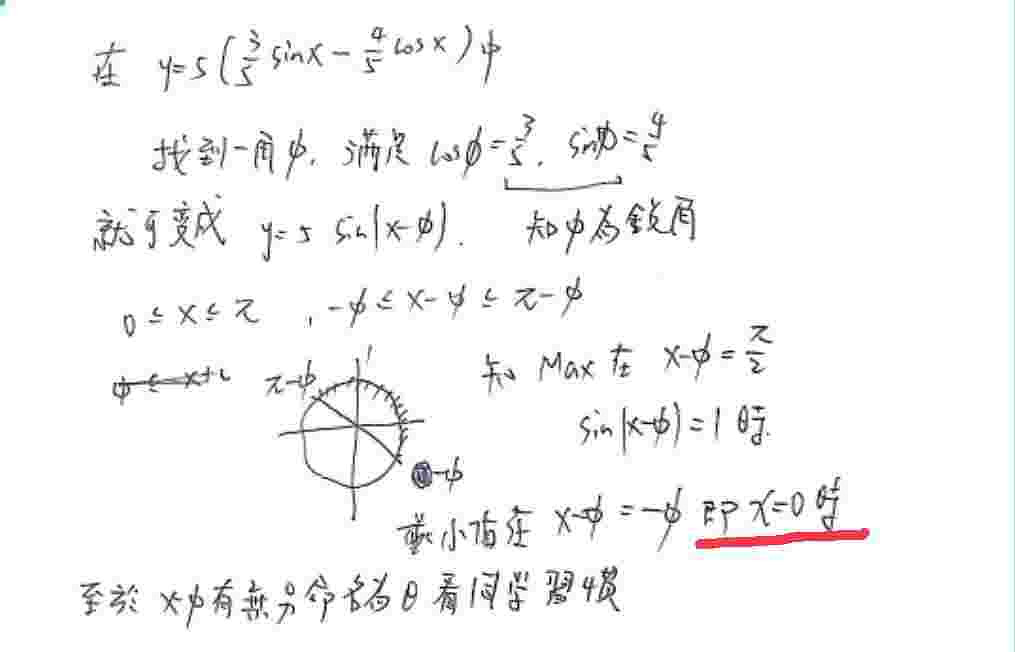 在 y=5(3/5 sinx - 4/5 cosx)中
找到一角φ, 滿足 cosφ=3/5, sinφ=4/5
就可变成 y=5 sin(x-φ). 知φ為銳角
0≤x≤π , -φ≤x-φ≤π-φ
π-φ
知 Max 在 x-φ=π/2
sin(x-φ)=1時.
-φ
最小值在 x-φ=-φ 即 x=0 時
至於 x-φ有無另命名為θ看同学習慣